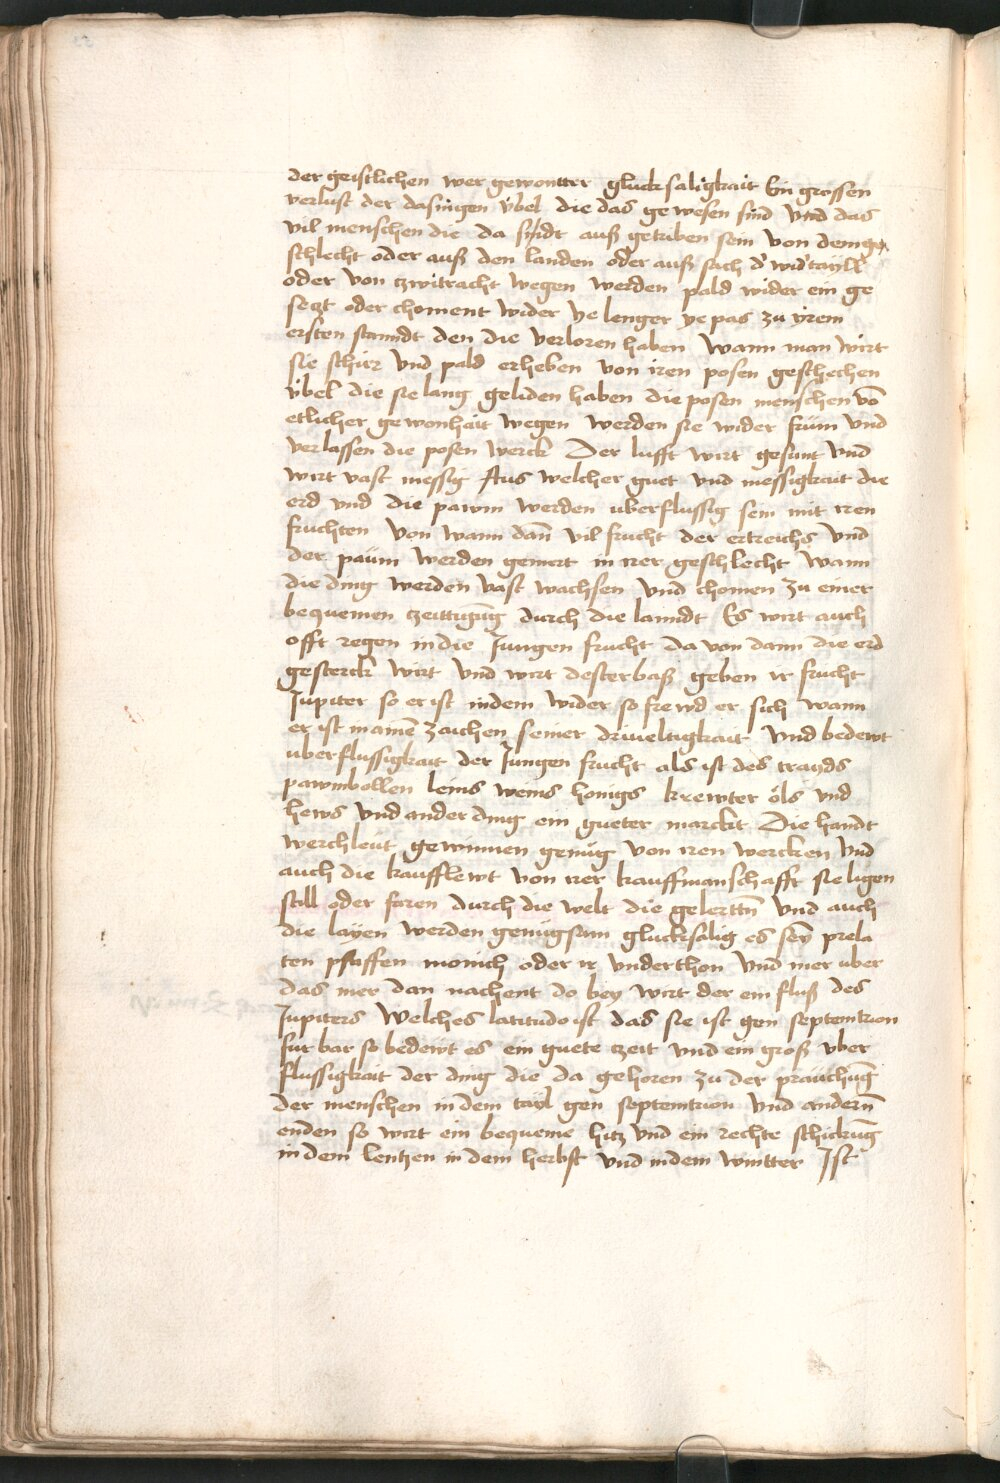 der geistlichen wer gewontter glucksaligkait Ein grossen
verlust der dasingen ubel die das gewesen sind vnd das
vil menschen die da sindt auß getriben sein von dem ge
schlecht oder auß den landen oder auß sach d' wid'tayll
oder von zwitracht wegen werden pald wider ein ge
setzt oder choment wider ye lenger ye pas zu yrem
ersten stanndt den die verloren haben Wann man wirt
sie schir vnd pald erheben von iren posen geschechen
vbel die sie lang geliden haben die posen menschen vō
etlicher gewonhait wegen werden sie wider frum vnd
verlassen die posen werck Der lufft wirt gesunt vnd
wirt vast messig Aus welcher guet vnd messigkait die
erd vnd die pawm werden uberflussig sein mit iren
fruchten von wann dañ vil frucht der ertreichs vnd
der paüm werden gemert in irer geschlecht Wann
die ding werden vast wachsen vnd chomen zu einer
bequemen zeittigūg durch die lanndt Es wirt auch
offt regen in die Jungen frucht da von dann die erd
gesterck wirt vnd wirt desterbaß geben ir frucht
Jupiter so er ist indem wider so frewd er sich wann
er ist in ainē zaichen seiner driueltigkait vnd bedewt
uberflussigkait der Jungen frucht als ist des trayds
pawmbollen leins weins honigs krewter öls vnd
hews vnd ander ding ein gueter marckt Die handt
werchleut gewinnen genüg von iren wercken vnd
auch die kaufflewt von irer kauffmanschafft sie ligen
still oder faren durch die welt die gelerttñ vnd auch
die layen werden genügsam glucksalig es sey prela
ten pfaffen monich oder ir vnderthon vnd mer uber
das mer dan nachent do bey wirt der ein fluß des
Jupiters Welches latitudo ist das sie ist gen septemtrion
fur bar so bedewt es ein guete zeit vnd ein groß vber
flussigkait der ding die da gehoren zu der präuchūg
der menschen in dem tayl gen septemtrion vnd anderñ
enden so wirt ein bequeme hitz vnd ein rechte schickūg
in dem lentzen in dem herbst vnd indem wintter Ist